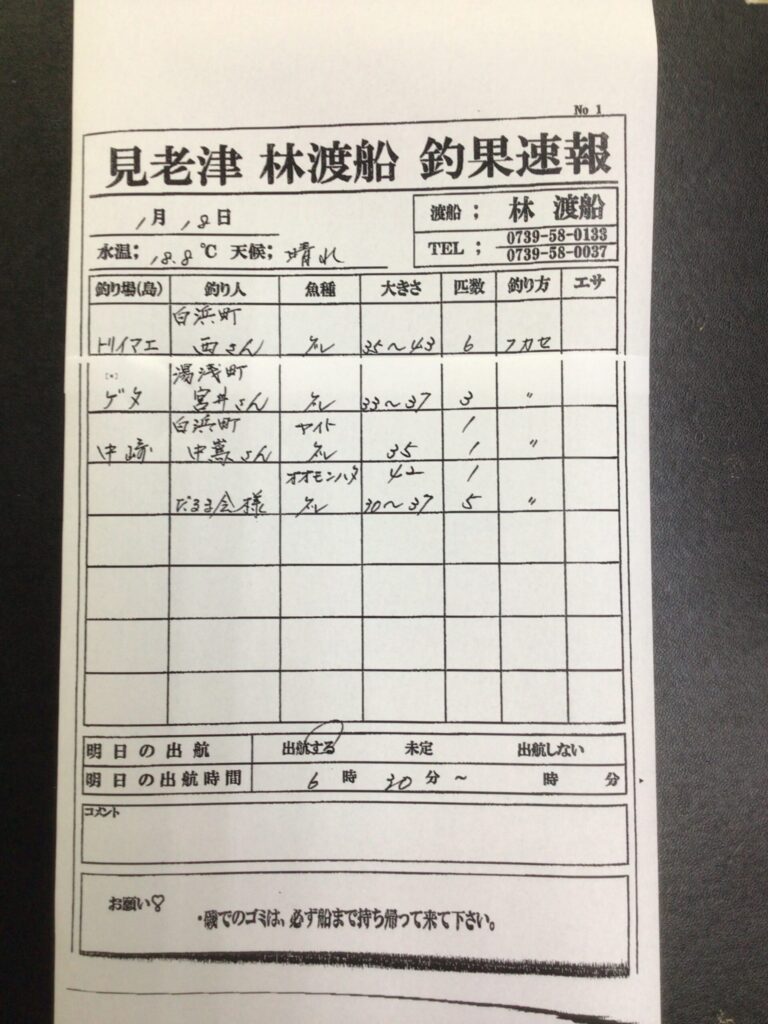 No 1
見老津 林渡船 釣果速報
1月 18日
渡船； 林 渡船
水温； 18.8 ℃ 天候； 晴れ
TEL； 0739-58-0133
0739-58-0037
釣り場(島) 釣り人 魚種 大きさ 匹数 釣り方 エサ
白浜町
トリイマエ 西さん グレ 35〜43 6 フカセ
湯浅町
ゲタ 宮井さん グレ 33〜37 3 〃
白浜町 ヤイト 1
中崎 さん グレ 35 1 〃
オオモンハタ 42 1
だるま会様 グレ 30〜37 5 〃
明日の出航 出航する 未定 出航しない
明日の出航時間 6 時 30 分 ～ 時 分
コメント
お願い♡
・磯でのゴミは、必ず船まで持ち帰って来て下さい。